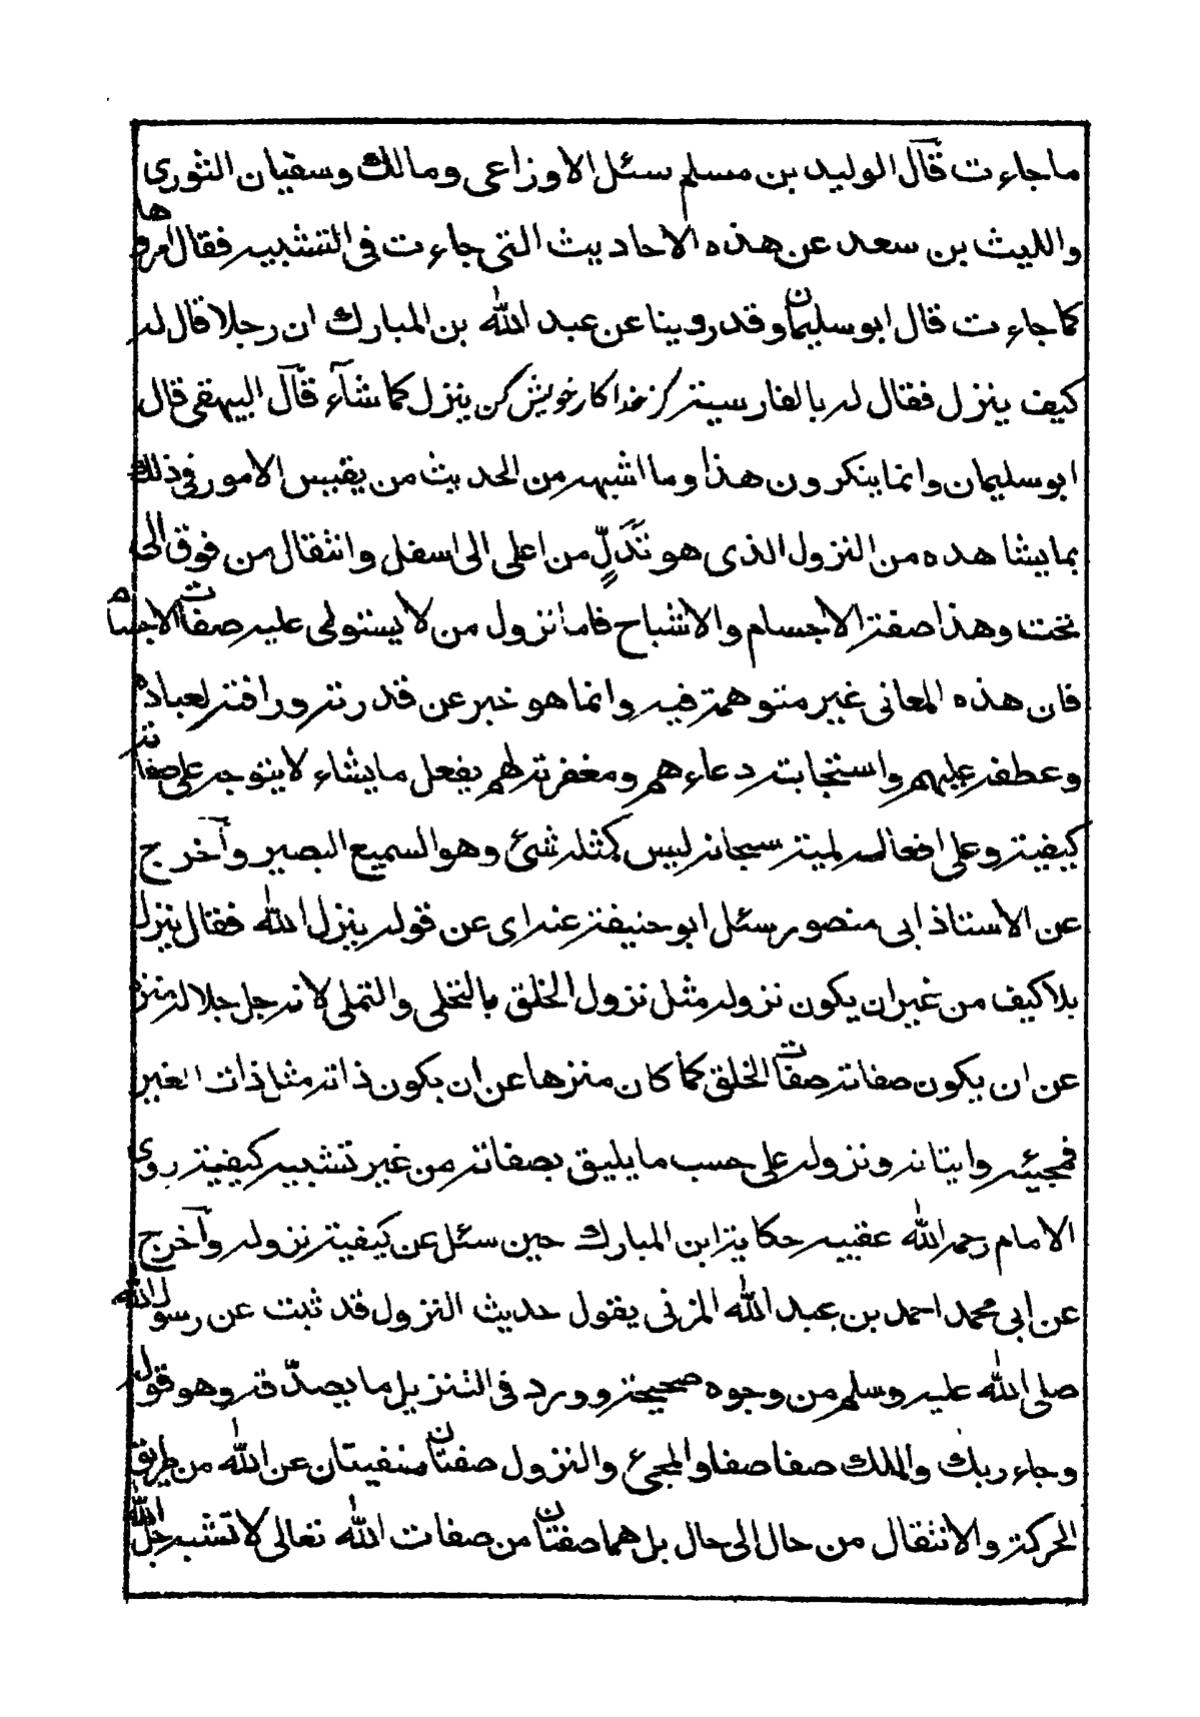 ما جاءت قال الوليد بن مسلم سئل الاوزاعى ومالك وسفيان الثورى
والليث بن سعد عن هذه الاحاديث التى جاءت فى التشبيه فقال امروها
كما جاءت قال ابو سليمان وقد روينا عن عبد الله بن المبارك ان رجلا قال له
كيف ينزل فقال له بالفارسية كز خدا كار خويش كن ينزل كما شآء قال البيهقى قال
ابو سليمان وانما ينكرون هذا وما اشبهه من الحديث من يقيس الامور فى ذلك
بما يشاهده من النزول الذى هو تَدَلٍّ من اعلى الى اسفل وانتقال من فوق الى
تحت وهذا صفة الاجسام والاشباح فاما نزول من لا يستولى عليه صفات الاجسام
فان هذه المعانى غير متوهمة فيه وانما هو خبر عن قدرته ورافته لعباده
وعطفه عليهم واستجابته دعاءهم ومغفرته لهم يفعل ما يشاء لا يتوجه على صفاته
كيفية وعلى افعاله لمية سبحانه ليس كمثله شئ وهو السميع البصير وآخرج
عن الاستاذ ابى منصور سئل ابو حنيفة عنه اى عن قوله ينزل الله فقال ينزل
بلا كيف من غير ان يكون نزوله مثل نزول الخلق بالتخلى والتملى لانه جل جلاله منزه
عن ان يكون صفاته صفات الخلق كما كان منزها عن ان يكون ذاته مثل ذات الغير
فمجيئه واتيانه ونزوله على حسب ما يليق بصفاته من غير تشبيه كيفية روى
الامام رحمه الله عقيبه حكاية ابن المبارك حين سئل عن كيفية نزوله وآخرج
عن ابى محمد احمد بن عبد الله المزنى يقول حديث النزول قد ثبت عن رسول الله
صلى الله عليه وسلم من وجوه صحيحة وورد فى التنزيل ما يصدّقه وهو قوله
وجاء ربك والملك صفا صفا والمجئ والنزول صفتان منفيتان عن الله من طريق
الحركة والانتقال من حال الى حال بل هما صفتان من صفات الله تعالى لا تشبه جل الله